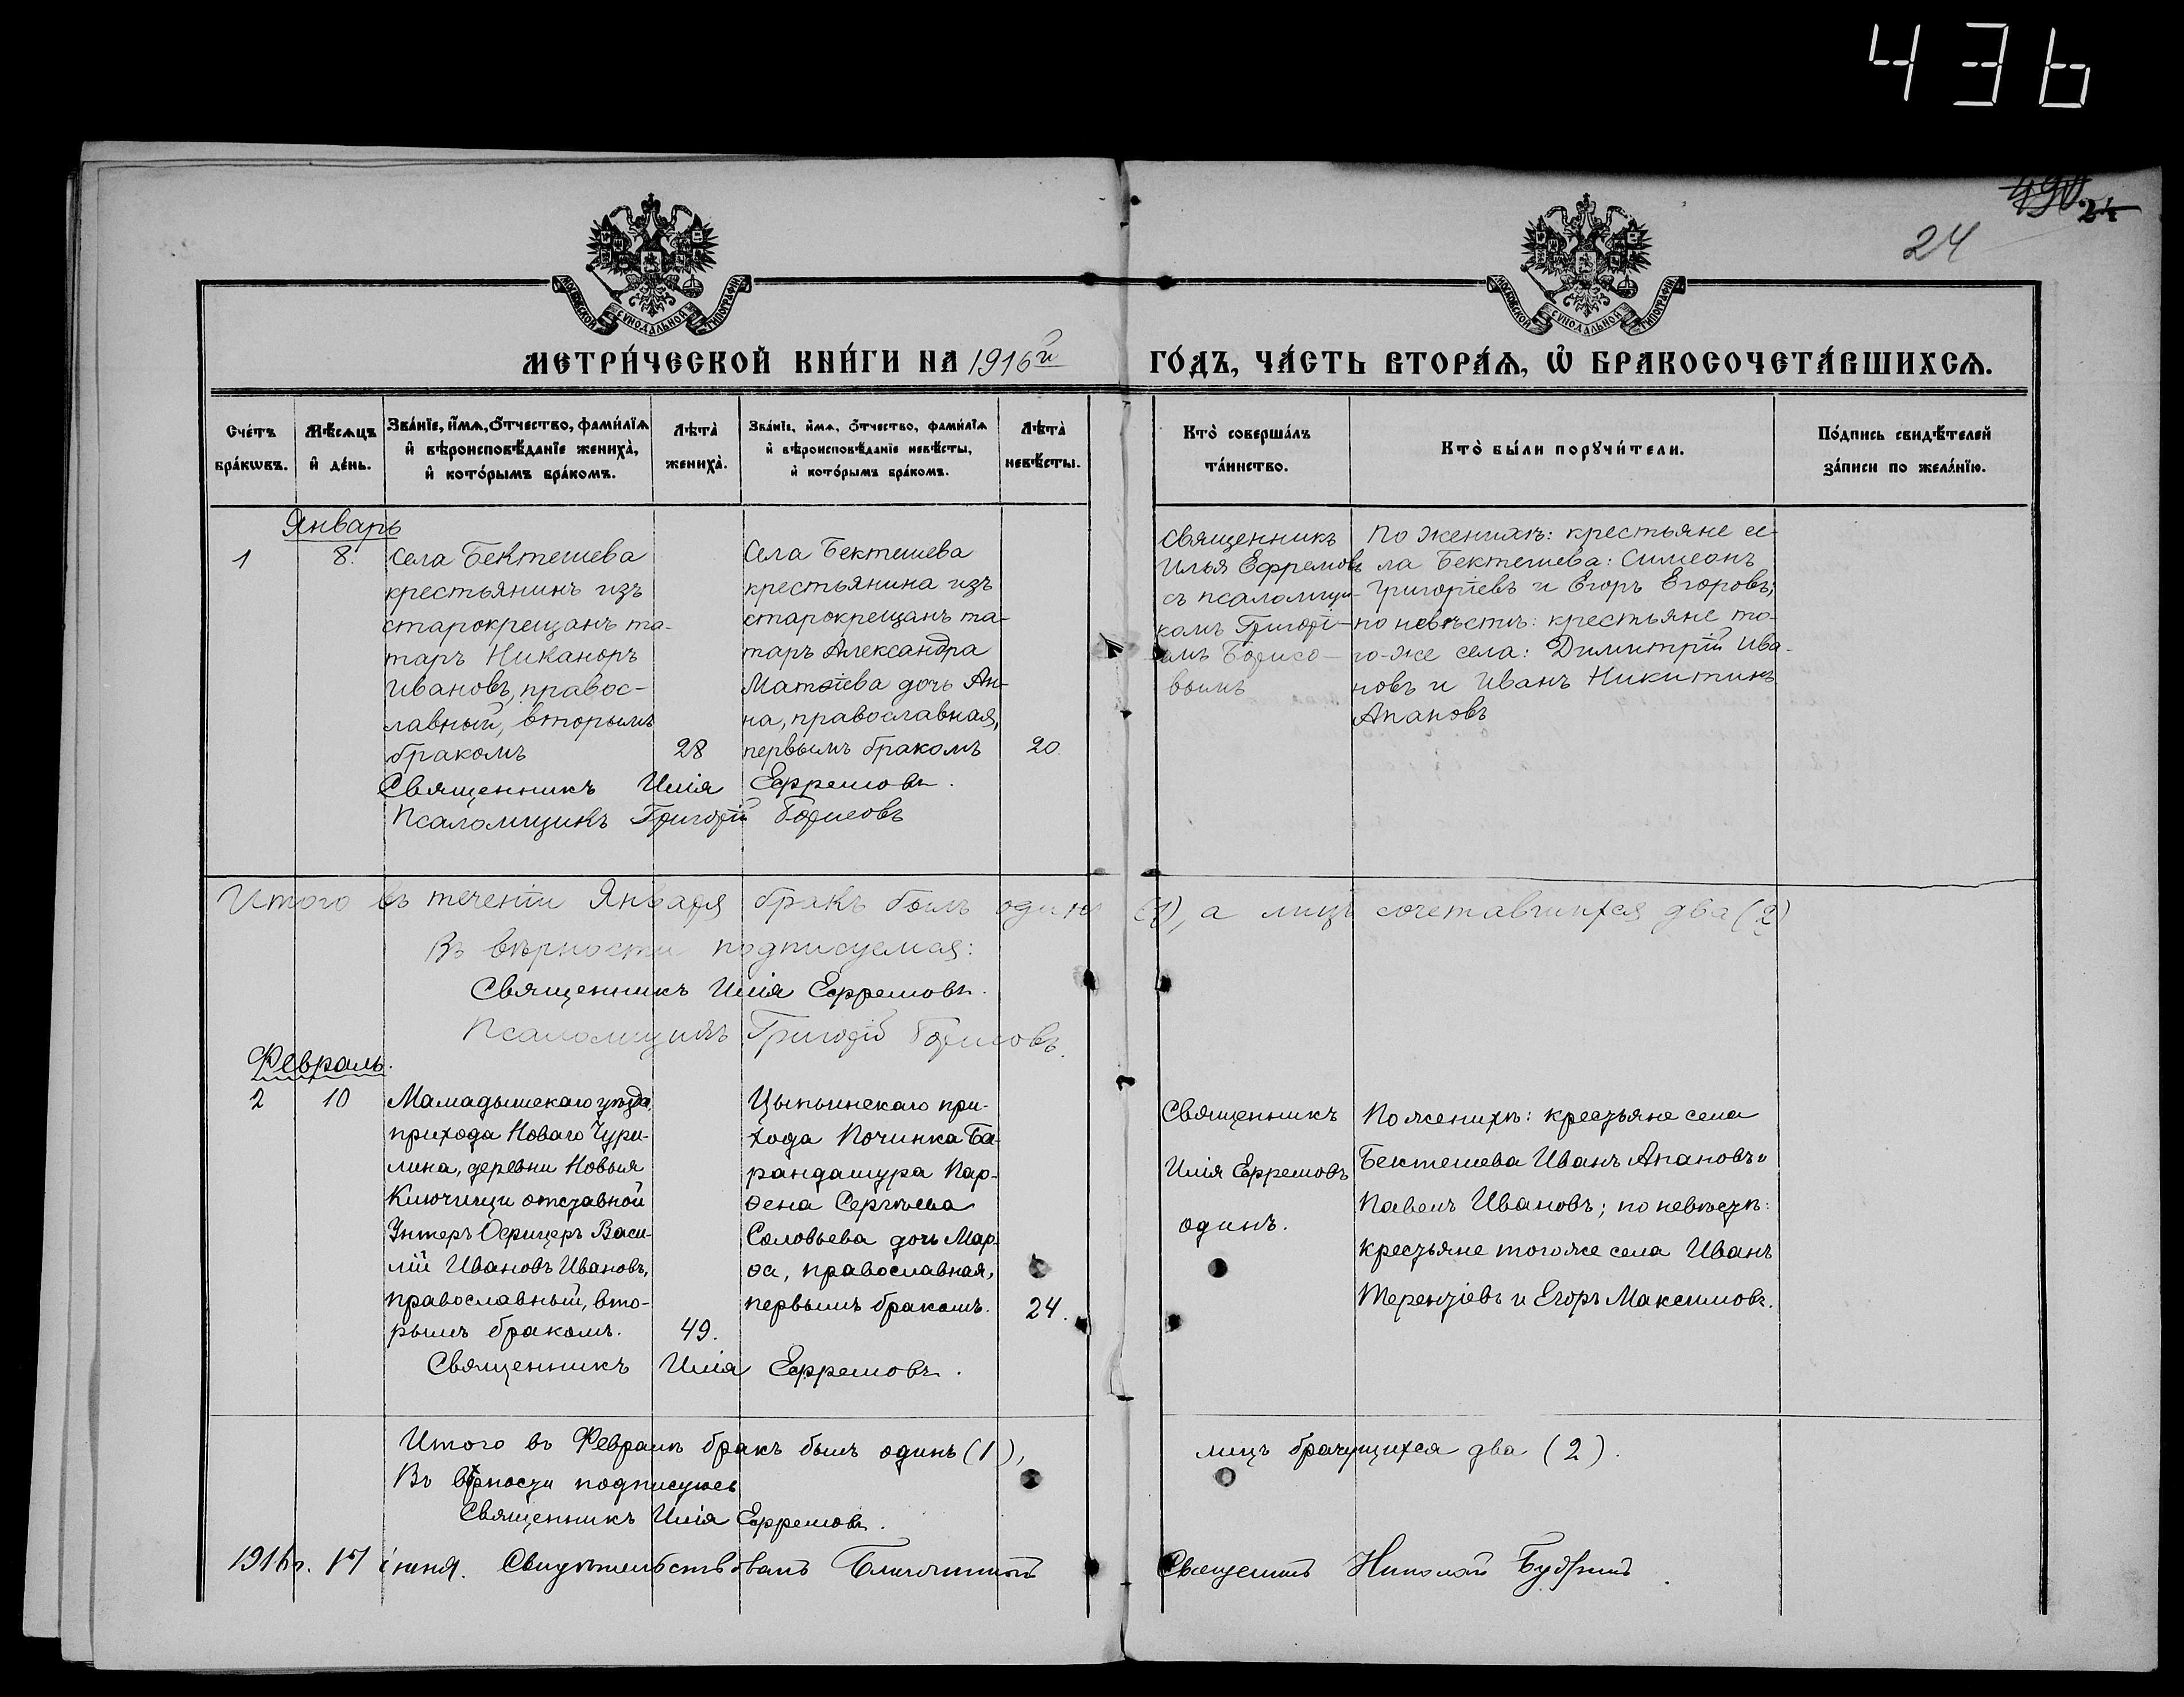 436
490. 24
24
МОСКОВСКОЙ СѴНОДАЛЬНОЙ ТИПОГРАФІИ
МОСКОВСКОЙ СѴНОДАЛЬНОЙ ТИПОГРАФІИ
МЕТРИ́ЧЕСКОЙ КНИ́ГИ НА 1916й ГО́ДЪ, ЧА́СТЬ ВТОРА́Ѧ, Ѡ҆ БРАКОСОЧЕТА́ВШИХСѦ.
Сче́тъ
бра́кѡвъ.
Мѣ́сѧцъ
и҆ де́нь.
Зва́нїе, и҆́мѧ, ѻ҆́тчество, фами́лїѧ
и҆ вѣроисповѣ́данїе жениха̀,
и҆ кото́рымъ бра́комъ.
Лѣта̀
жениха̀.
Зва́нїе, и҆́мѧ, ѻ҆́тчество, фами́лїѧ
и҆ вѣроисповѣ́данїе невѣ́сты,
и҆ кото́рымъ бра́комъ.
Лѣта̀
невѣ́сты.
Кто̀ соверша́лъ
та́инство.
Кто̀ бы́ли порꙋчи́тели.
По́дпись свидѣ́телей
за́писи по жела́нїю.
Январь
1
8.
села Бектешева
крестьянинъ изъ
старокрещанъ та-
таръ Никаноръ
Ивановъ, правос-
лавный, вторымъ
бракомъ
28
Села Бектешева
крестьянина изъ
старокрещанъ та-
таръ Александра
Матѳіева дочь Ан-
на, православная,
первымъ бракомъ
20
Священникъ
Илья Ефремовъ
съ псаломщи-
комъ Григорі-
емъ Борисо-
вымъ
По женихѣ: крестьяне се-
ла Бектешева: Симеонъ
Григоріевъ и Егоръ Егоровъ;
по невѣстѣ: крестьяне то-
го-же села: Димитрій Ива-
новъ и Иванъ Никитинъ
Апаковъ
Священникъ Илія Ефремовъ.
Псаломщикъ Григорій Борисовъ
Итого въ теченіи Января бракъ былъ одинъ (1), а лицъ сочетавшихся два (2)
Въ вѣрности подписуемся:
Священникъ Илія Ефремовъ.
Псаломщикъ Григорій Борисовъ.
Февраль.
2
10
Мамадышскаго уѣзда,
прихода Новаго Чури-
лина, деревни Новыя
Ключищи отставной
Унтеръ Офицеръ Васи-
лій Ивановъ Ивановъ,
православный, вто-
рымъ бракомъ.
49.
Цыпьинскаго при-
хода Починка Ба-
рандашура Пар-
ѳена Сергѣева
Соловьева дочь Мар-
ѳа, православная,
первымъ бракомъ.
24.
Священникъ
Илія Ефремовъ
одинъ.
По женихѣ: крестьяне села
Бектешева Иванъ Апаковъ и
Павелъ Ивановъ; по невѣстѣ:
крестьяне тогоже села Иванъ
Терентіевъ и Егоръ Максимовъ.
Священникъ Илія Ефремовъ.
Итого въ Февралѣ бракъ былъ одинъ (1), лицъ брачущихся два (2).
Въ вѣрности подписуюсь
Священникъ Илія Ефремовъ.
1916 г. 17 іюня. Свидѣтельствовалъ Благочинный Священникъ Николай